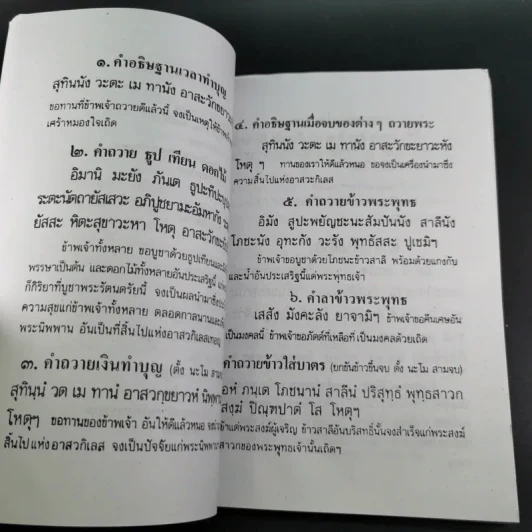 ๑. คำอธิษฐานเวลาทำบุญ
สุทินนัง วะตะ เม ทานัง อาสะวักขยาว
ขอทานที่ข้าพเจ้าถวายดีแล้วนี้ จงเป็นเหตุให้ข้าพเจ้า
เศร้าหมองใจเถิด
๒. คำถวาย ธูป เทียน ดอกไม้
อิมานิ มะยัง ภันเต ธูปะทีปะ
ระตะนัตถายัสเสวะ อภิปูชยามะอัมหากัง
ยัสสะ หิตะสุขาวะหา โหตุ อาสะวักขะ
ข้าพเจ้าทั้งหลาย ขอบูชาด้วยธูปเทียน
พรรษาเป็นต้น และดอกไม้ทั้งหลายอันประเสริฐนี้
ก็กิริยาที่บูชาพระรัตนตรัยนี้ จงเป็นผลนำมาซึ่ง
ความสุขแก่ข้าพเจ้าทั้งหลาย ตลอดกาลนาน
พระนิพพาน อันเป็นที่สิ้นไปแห่งอาสวกิเลส
๓. คำถวายเงินทำบุญ (ตั้ง นะโม สาม
สุทินฺนํ วต เม ทานํ อาสวกฺขยาวหํ นิพฺพาน
โหตุฯ ขอทานของข้าพเจ้า อันให้ดีแล้วหนอ จง
สิ้นไปแห่งอาสวกิเลส จงเป็นปัจจัยแก่พระนิพพาน
๔. คำอธิษฐานเมื่อจบของต่างๆ ถวายพระ
สุทินนัง วะตะ เม ทานัง อาสะวักขะยาวะหัง
โหตุ ฯ ทานของเราให้ดีแล้วหนอ ขอจงเป็นเครื่องนำมาซึ่ง
ความสิ้นไปแห่งอาสวะกิเลส
๕. คำถวายข้าวพระพุทธ
อิมัง สูปะพยัญชะนะสัมปันนัง สาลีนัง
โภชะนัง อุทะกัง วะรัง พุทธัสสะ ปูเชมิฯ
ข้าพเจ้าขอบูชาด้วยโภชนะข้าวสาลี พร้อมด้วยแกงกับ
และน้ำอันประเสริฐนี้แด่พระพุทธเจ้า
๖. คำลาข้าวพระพุทธ
เสสัง มังคะลัง ยาจามิฯ ข้าพเจ้าขอคืนเศษอัน
เป็นมงคลนี้ ข้าพเจ้าขอภัตต์ที่เหลือที่ เป็นมงคลด้วยเถิด
คำถวายข้าวใส่บาตร (ยกขันข้าวขึ้นจบ ตั้ง นะโม สามจบ)
อหํ ภนฺเต โภชนานํ สาลีนํ ปริสุทฺธํ พุทฺธสาวก
สงฺฆํ ปิณฺฑปาตํ โส โหตุฯ
ข้าแต่พระสงฆ์ผู้เจริญ ข้าวสาลีอันบริสุทธิ์นั้นจงสำเร็จแก่พระสงฆ์
สาวกของพระพุทธเจ้านั้นเถิดฯ